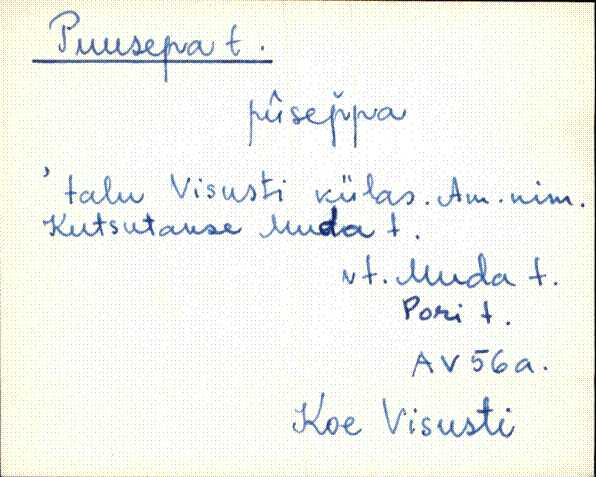 Puusepa t.
pûsep̆pa
' talu Visusti külas. Am. nim.
Kutsutanse Muda t.
vt. Muda t.
Pori t.
AV 56a.
Koe Visusti